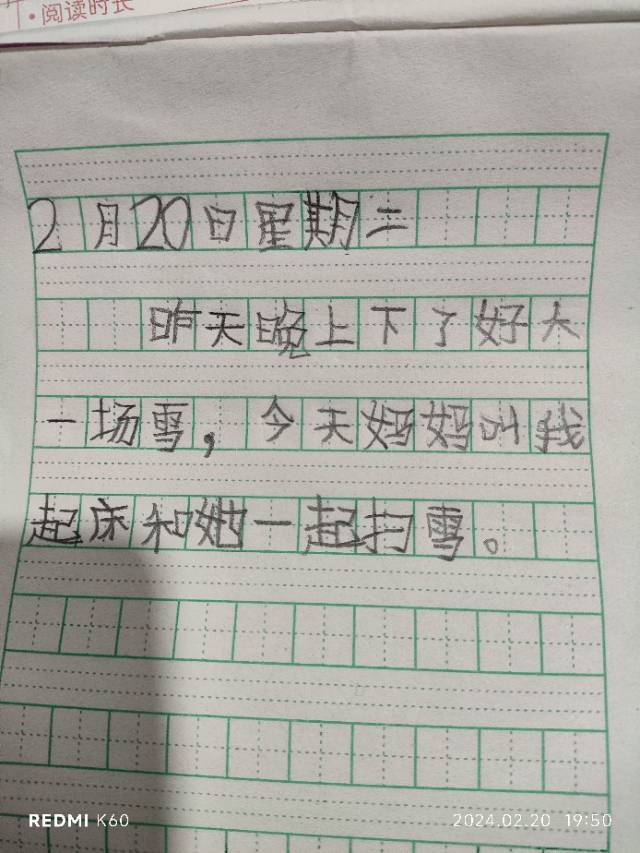 ·阅读时长
2月20日星期二
昨天晚上下了好大
一场雪，今天妈妈叫我
起床和她一起扫雪。
REDMI K60
2024.02.20 19:50